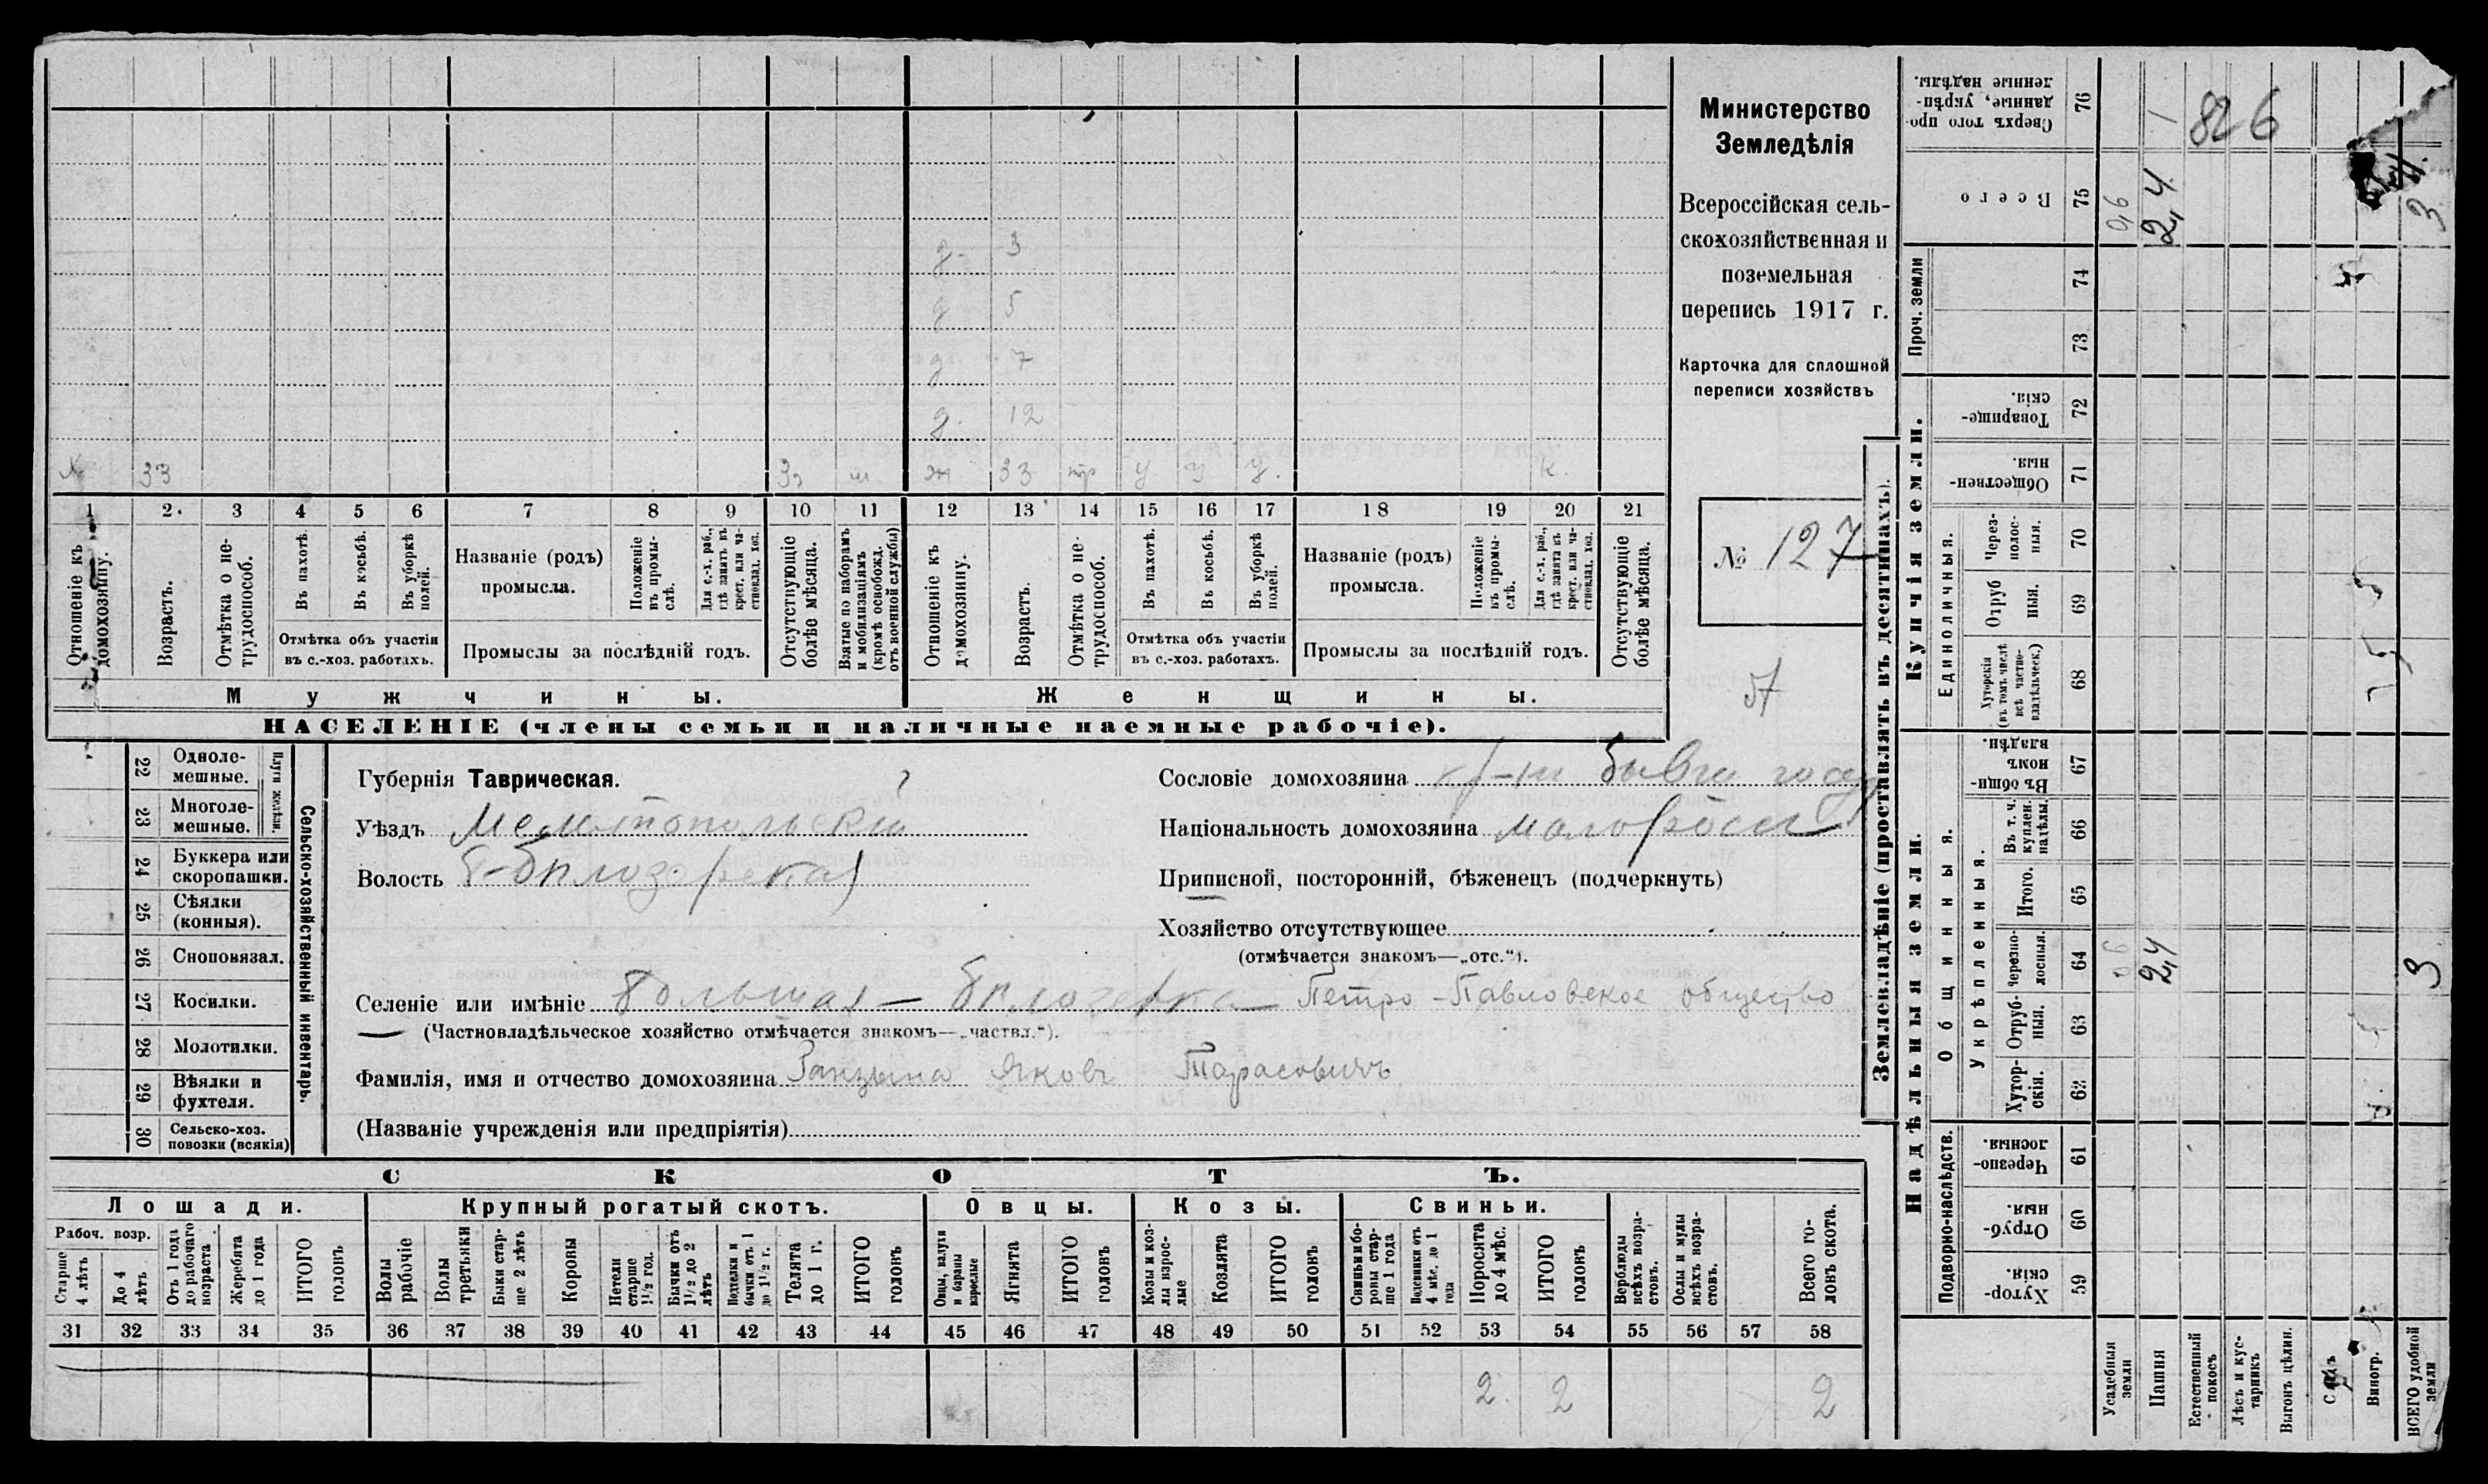 д. 3
д 5
д 7
д. 12
х 33 Зз м. ж 33 тр у у у. к.
1 2. 3 4 5 6 7 8 9 10 11 12 13 14 15 16 17 18 19 20 21
Отношеніе къ домохозяину.
Возрастъ.
Отмѣтка о не-
трудоспособ.
Въ пахотѣ.
Въ косьбѣ.
Въ уборкѣ
полей.
Отмѣтка объ участіи
въ с.-хоз. работахъ.
Названіе (родъ)
промысла.
Положеніе
въ промы-
слѣ.
Для с.-х. раб.,
гдѣ занятъ въ
крест. или ча-
стновлад. хоз.
Промыслы за послѣдній годъ.
Отсутствующіе
болѣе мѣсяца.
Взятые по наборамъ
и мобилизаціямъ
(кромѣ освобожд.
отъ военной службы)
Отношеніе къ
домохозяину.
Возрастъ.
Отмѣтка о не-
трудоспособ.
Въ пахотѣ.
Въ косьбѣ.
Въ уборкѣ
полей.
Отмѣтка объ участіи
въ с.-хоз. работахъ.
Названіе (родъ)
промысла.
Положеніе
въ промы-
слѣ.
Для с.-х. раб.,
гдѣ занята въ
крест. или ча-
стновлад. хоз.
Промыслы за послѣдній годъ.
Отсутствующіе
болѣе мѣсяца.
Мужчины.
Женщины.
НАСЕЛЕНІЕ (члены семьи и наличные наемные рабочіе).
Министерство
Земледѣлія
Всероссійская сель-
скохозяйственная и
поземельная
перепись 1917 г.
Карточка для сплошной
переписи хозяйствъ
№ 127
57
22 Одноле-
мешные.
23 Многоле-
мешные.
Плуги желѣзн.
24 Буккера или
скоропашки.
25 Сѣялки
(конныя).
26 Сноповязал.
27 Косилки.
28 Молотилки.
29 Вѣялки и
фухтеля.
30 Сельско-хоз.
повозки (всякія)
Сельско-хозяйственный инвентарь.
Губернія Таврическая.
Уѣздъ Мелитопольскій
Волость Б-Бѣлозерская
Сословіе домохозяина кр-нъ бывш госуд
Національность домохозяина малоросс
Приписной, посторонній, бѣженецъ (подчеркнуть)
Хозяйство отсутствующее
(отмѣчается знакомъ—„отс.“).
Селеніе или имѣніе Большая-Бѣлозерка Петро-Павловское общество
(Частновладѣльческое хозяйство отмѣчается знакомъ—„частвл.“).
Фамилія, имя и отчество домохозяина Яковъ Тарасовичъ
(Названіе учрежденія или предпріятія)
СКОТЪ.
Лошади. Крупный рогатый скотъ. Овцы. Козы. Свиньи.
Рабоч. возр.
Старше
4 лѣтъ
До 4
лѣтъ
Отъ 1 года
до рабочаго
возраста
Жеребята
до 1 года
ИТОГО
головъ
Волы
рабочіе
Волы
третьяки
Быки стар-
ше 2 лѣтъ
Коровы
Нетели
старше
1½ год.
Бычки отъ
1½ до 2
лѣтъ
Подтелки и
бычки отъ 1
до 1½ г.
Телята
до 1 г.
ИТОГО
головъ
Овцы, валухи
и бараны
взрослые
Ягнята
ИТОГО
головъ
Козы и коз-
лы взрос-
лые
Козлята
ИТОГО
головъ
Свиньи и бо-
ровы стар-
ше 1 года
Подсвинки отъ
4 мѣс. до 1
года
Поросята
до 4 мѣс.
ИТОГО
головъ
Верблюды
всѣхъ возра-
стовъ.
Ослы и мулы
всѣхъ возра-
стовъ.
Всего го-
ловъ скота.
31 32 33 34 35 36 37 38 39 40 41 42 43 44 45 46 47 48 49 50 51 52 53 54 55 56 57 58
2 2 2
Землевладѣніе (проставлять въ десятинахъ).
Купчія земли.
Надѣльныя земли.
Сверхъ того про-
данные, укрѣп-
ленные надѣлы.
76
1 826
Всего
75
0,6 2,4 3
Проч. земли
74
73
Товарище-
скія.
72
Обществен-
ныя.
71
Единоличныя.
Через-
полос-
ныя.
70
Отруб
ныя.
69
Хуторскія
(въ томъ числѣ
всѣ частно-
владѣльческ.)
68
Общинныя.
Въ общи-
номъ
владѣн.
67
Укрѣпленныя.
Въ т. ч.
куплен.
надѣлы.
66
Итого.
65
Черезпо-
лосныя.
64
0,6 2,4 3
Отруб-
ныя.
63
Хутор-
скія.
62
Подворно-наслѣдств.
Черезпо-
лосныя.
61
Отруб-
ныя.
60
Хутор-
скія.
59
Усадебныя
земли
Пашня
Естественный
покосъ
Лѣсъ и кус-
тарникъ
Выгонъ цѣлин.
Садъ
Виногр.
ВСЕГО удобной
земли